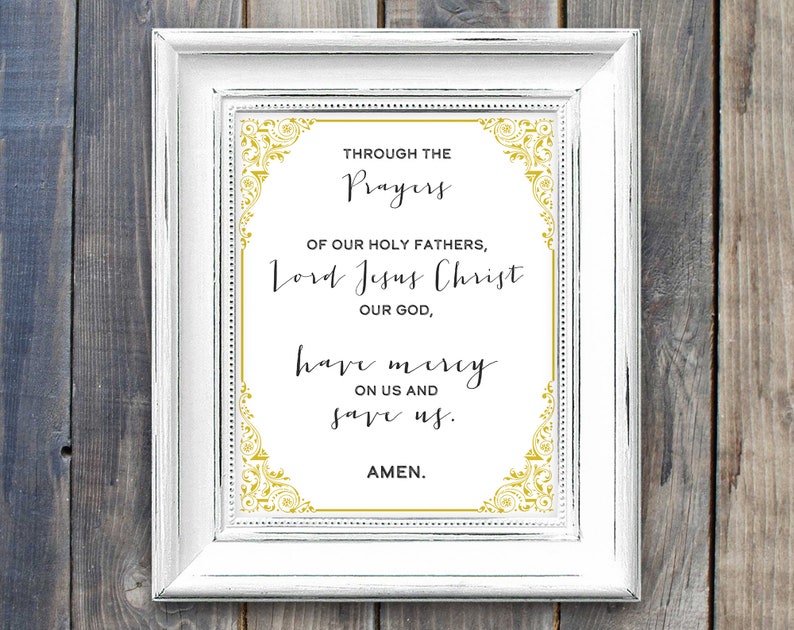 THROUGH THE
Prayers
OF OUR HOLY FATHERS,
Lord Jesus Christ
OUR GOD,
have mercy
ON US AND
save us.
AMEN.